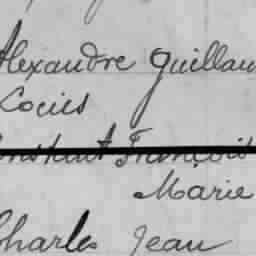 Alexandre Guillau
Louis
onstant François
Marie
Charles Jean